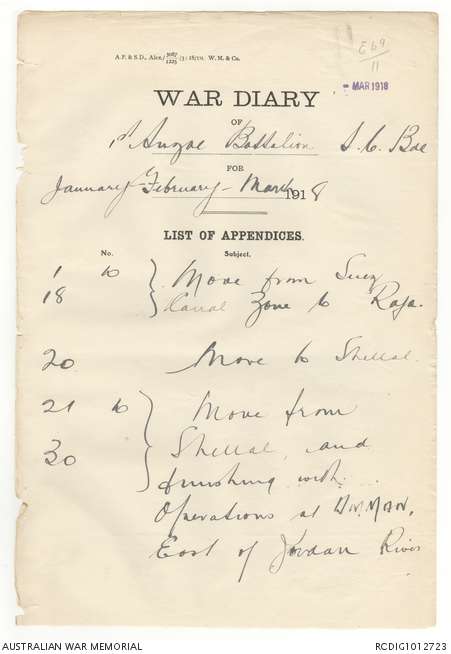 E 69
11
A.P. & S.D., Alex./3087/1225/3:18/5M. W. M. & Co.
- MAR 1918
WAR DIARY
OF
1st Anzac Battalion I. C. Bde
FOR
January February - March 1918
LIST OF APPENDICES.
No. Subject.
1 to Move from Suez
18 Canal Zone to Rafa.
20 Move to Shellal
21 to Move from
30 Shellal, and
finishing with
Operations at AMMAN,
East of Jordan River
AUSTRALIAN WAR MEMORIAL RCDIG1012723